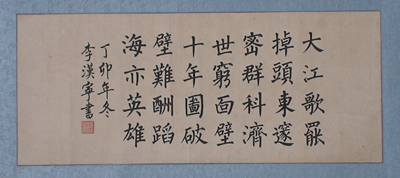 大江歌罷
掉頭東邃
密群科濟
世窮面壁
十年圖破
壁難酬蹈
海亦英雄
丁卯年冬
李漢寧書